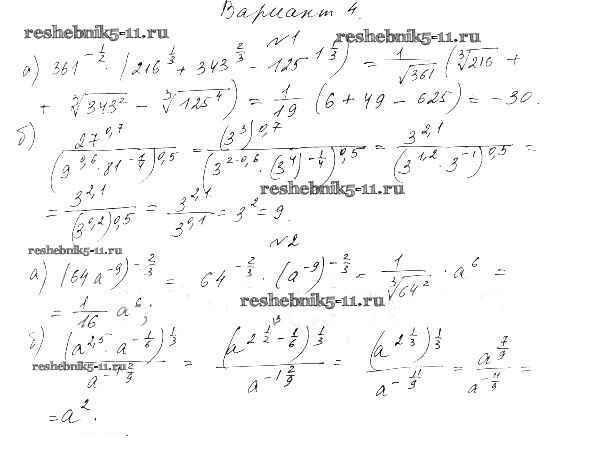 Вариант 4.
reshebnik5-11.ru
reshebnik5-11.ru
№1
а) 361^{-1/2} · (216^{1/3} + 343^{2/3} - 125^{1 1/3}) = 1/√361 (∛216 +
+ ∛343² - ∛125⁴) = 1/19 (6 + 49 - 625) = -30.
б) 27^{0,7} / (9^{0,6} · 81^{-1/4})^{0,5} = (3³)^{0,7} / (3^{2·0,6} · (3⁴)^{-1/4})^{0,5} = 3^{2,1} / (3^{1,2} · 3^{-1})^{0,5} =
reshebnik5-11.ru
= 3^{2,1} / (3^{0,2})^{0,5} = 3^{2,1} / 3^{0,1} = 3² = 9.
№2
reshebnik5-11.ru
а) (64a^{-9})^{-2/3} = 64^{-2/3} · (a^{-9})^{-2/3} = 1/∛64² · a⁶ =
reshebnik5-11.ru
= 1/16 a⁶;
б) (a^{2,5} · a^{-1/6})^{1/3} / a^{-1 2/9} = (a^{2 1/2 - 1/6})^{1/3} / a^{-1 2/9} = (a^{2 1/3})^{1/3} / a^{-11/9} = a^{7/9} / a^{-11/9} =
reshebnik5-11.ru
= a².